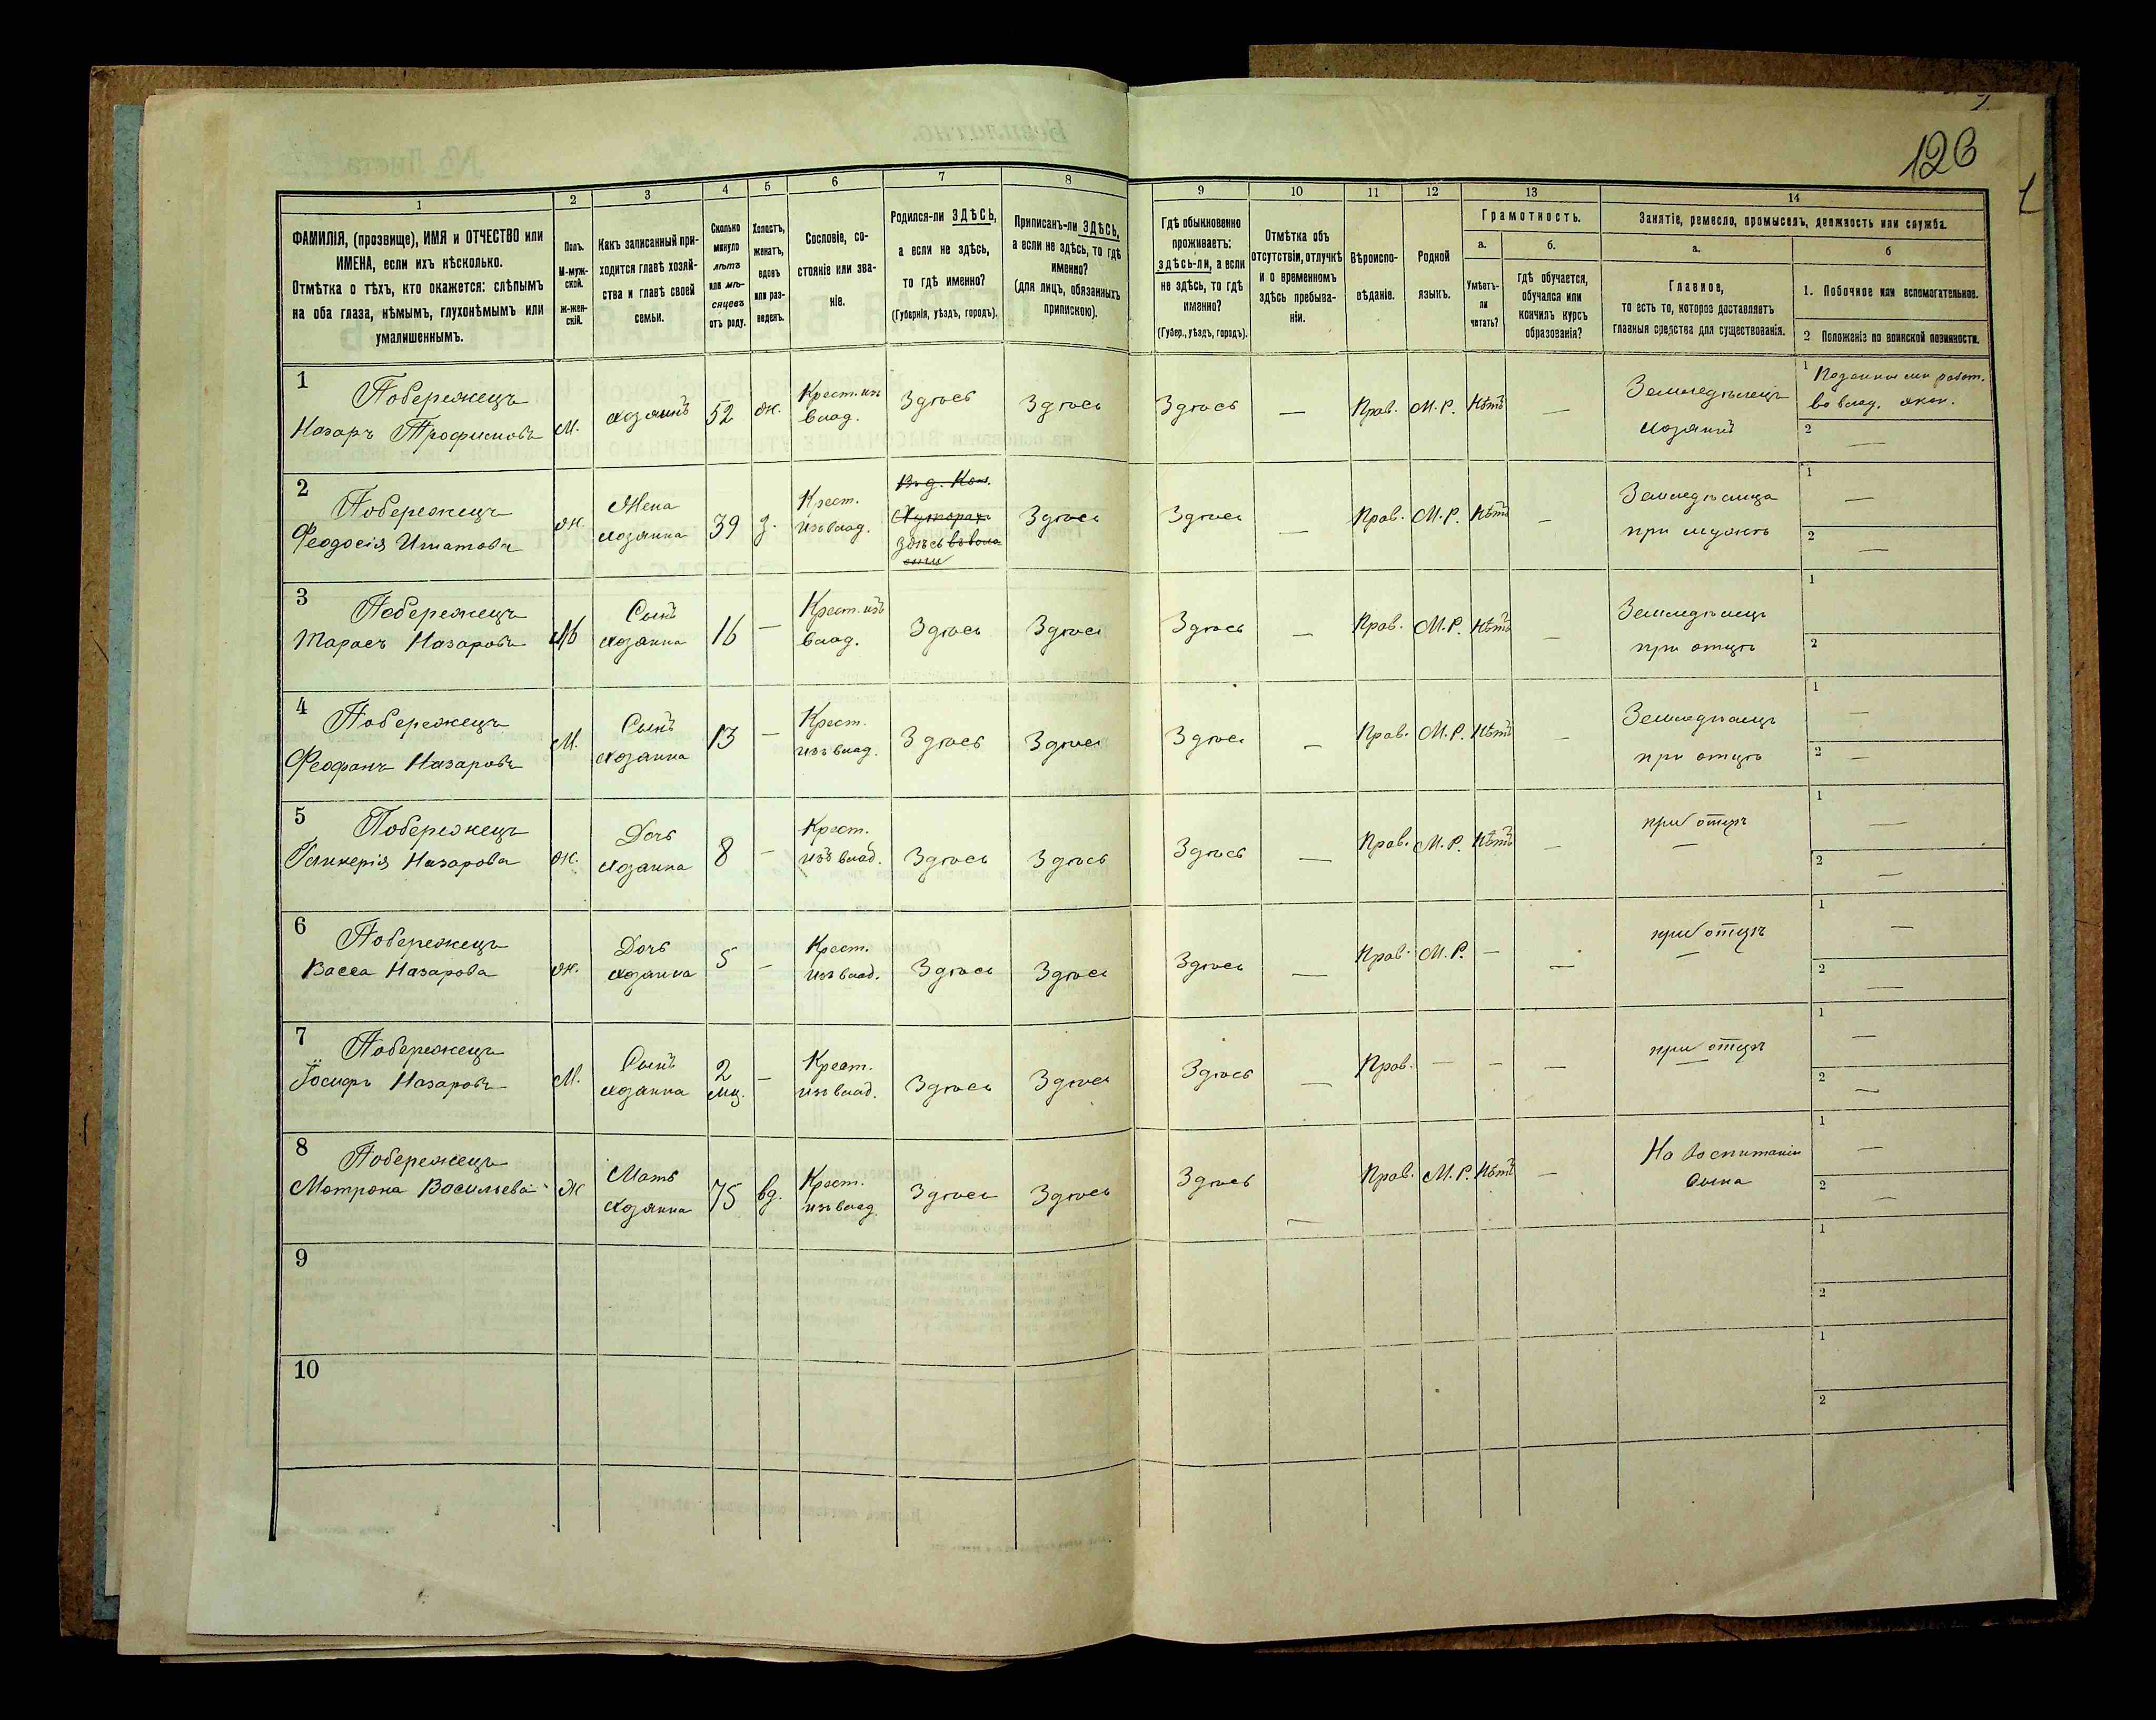 126
1
2
3
4
5
6
7
8
9
10
11
12
13
14
ФАМИЛІЯ, (прозвище), ИМЯ и ОТЧЕСТВО или
ИМЕНА, если ихъ нѣсколько.
Отмѣтка о тѣхъ, кто окажется: слѣпымъ
на оба глаза, нѣмымъ, глухонѣмымъ или
умалишеннымъ.
Полъ.
М-муж-
ской.
Ж-жен-
скій.
Какъ записанный при-
ходится главѣ хозяй-
ства и главѣ своей
семьи.
Сколько
минуло
лѣтъ
или мѣ-
сяцевъ
отъ роду.
Холостъ,
женатъ,
вдовъ
или раз-
веденъ.
Сословіе, со-
стояніе или зва-
ніе.
Родился-ли ЗДѢСЬ,
а если не здѣсь,
то гдѣ именно?
(Губернія, уѣздъ, городъ).
Приписанъ-ли ЗДѢСЬ,
а если не здѣсь, то гдѣ
именно?
(для лицъ, обязанныхъ
припискою).
Гдѣ обыкновенно
проживаетъ:
здѣсь-ли, а если
не здѣсь, то гдѣ
именно?
(Губер., уѣздъ, городъ).
Отмѣтка объ
отсутствіи, отлучкѣ
и о временномъ
здѣсь пребыва-
ніи.
Вѣроиспо-
вѣданіе.
Родной
языкъ.
Грамотность.
а.
Умѣетъ-
ли
читать?
б.
гдѣ обучается,
обучался или
кончилъ курсъ
образованія?
Занятіе, ремесло, промыселъ, должность или служба.
а.
Главное,
то есть то, которое доставляетъ
главныя средства для существованія.
б
1. Побочное или вспомогательное.
2 Положеніе по воинской повинности.
1
Побережецъ
Назаръ Трофимовъ
М.
хозяинъ
52
ж.
Крест. изъ
влад.
Здѣсь
Здѣсь
Здѣсь
—
Прав.
М.Р.
Нѣтъ
—
Земледѣлецъ
хозяинъ
1
работ.
во влад. экон.
2
—
2
Побережецъ
Феодосія Игнатова
ж.
Жена
хозяина
39
з.
Крест.
изъ влад.
Здѣсь
Здѣсь
Здѣсь
—
Прав.
М.Р.
Нѣтъ
—
Земледѣлица
при мужѣ
1
—
2
—
3
Побережецъ
Тарасъ Назаровъ
М
Сынъ
хозяина
16
—
Крест. изъ
влад.
Здѣсь
Здѣсь
Здѣсь
—
Прав.
М.Р.
Нѣтъ
—
Земледѣлецъ
при отцѣ
1
2
4
Побережецъ
Феофанъ Назаровъ
М.
Сынъ
хозяина
13
—
Крест.
изъ влад.
Здѣсь
Здѣсь
Здѣсь
—
Прав.
М.Р.
Нѣтъ
—
Земледѣлецъ
при отцѣ
1
—
2
—
5
Побережецъ
Гликерія Назарова
ж.
Дочь
хозяина
8
—
Крест.
изъ влад.
Здѣсь
Здѣсь
Здѣсь
—
Прав.
М.Р.
Нѣтъ
—
при отцѣ
—
1
—
2
—
6
Побережецъ
Васса Назарова
ж.
Дочь
хозяина
5
—
Крест.
изъ влад.
Здѣсь
Здѣсь
Здѣсь
—
Прав.
М.Р.
—
—
при отцѣ
—
1
—
2
—
7
Побережецъ
Іосифъ Назаровъ
М.
Сынъ
хозяина
2
мц.
—
Крест.
изъ влад.
Здѣсь
Здѣсь
Здѣсь
—
Прав.
—
—
—
при отцѣ
—
1
—
2
—
8
Побережецъ
Матрона Васильева
Ж
Мать
хозяина
75
вд.
Крест.
изъ влад
Здѣсь
Здѣсь
Здѣсь
—
Прав.
М.Р.
Нѣтъ
—
На воспитаніи
сына
1
—
2
—
9
1
2
10
1
2